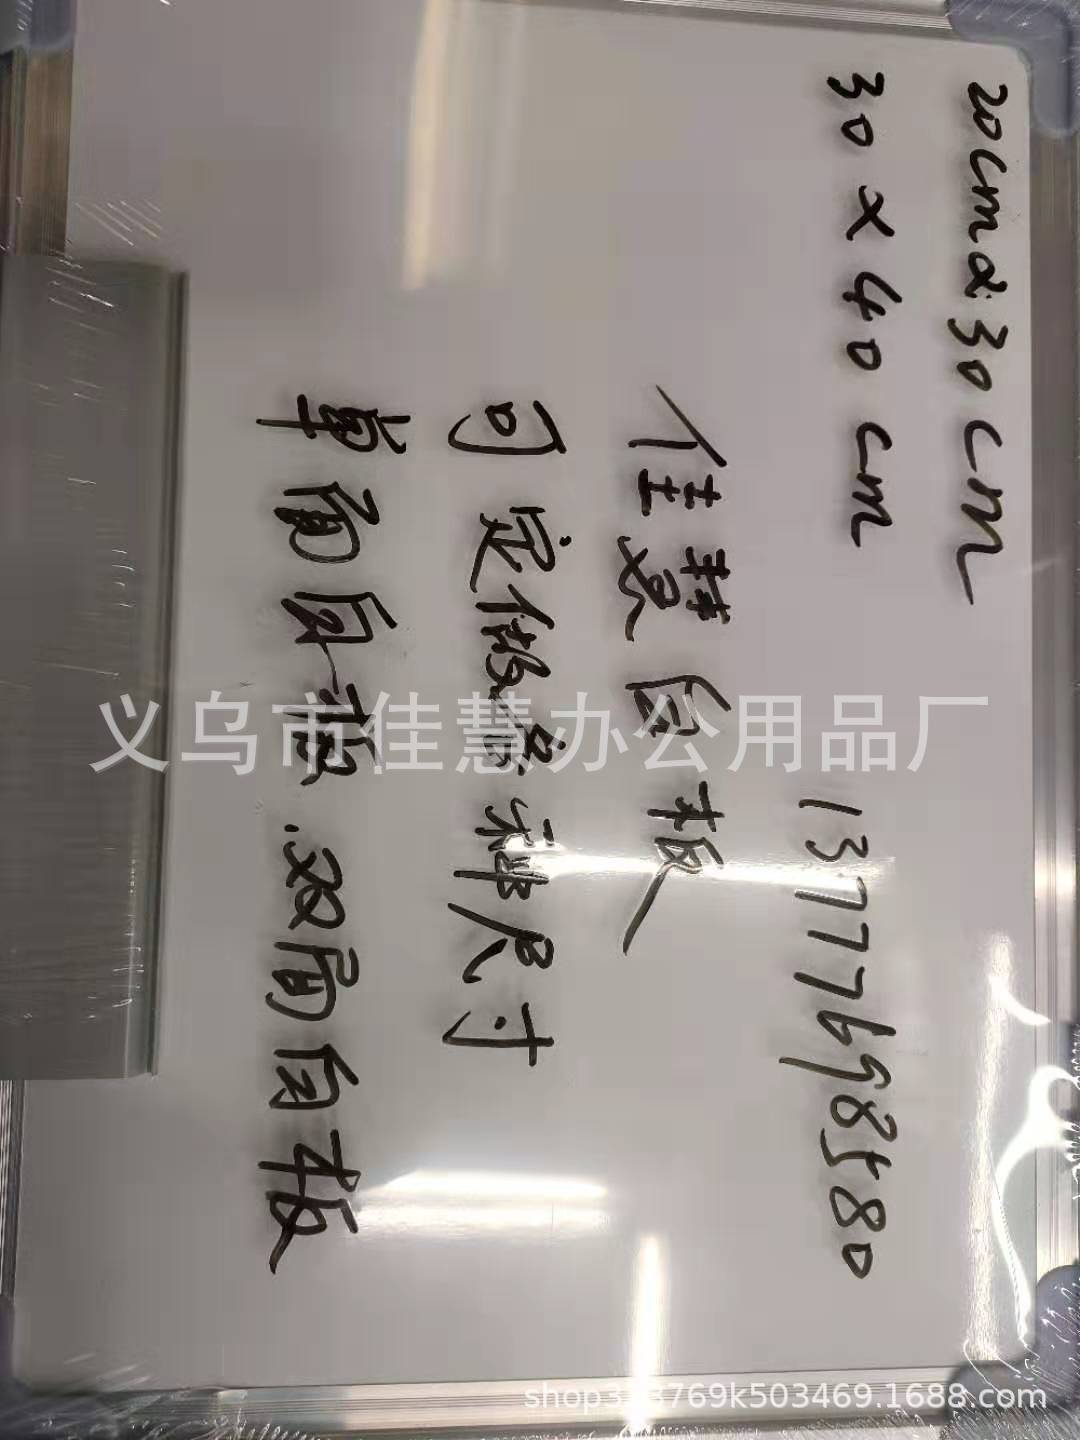 20cmα30cm
30×40cm
13777698580
佳慧白板
可定做各种尺寸
单面白板.双面白板
义乌市佳慧办公用品厂